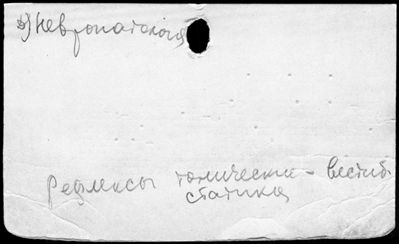 в) невропатология
Рефлексы тонические - вестиб.
статика